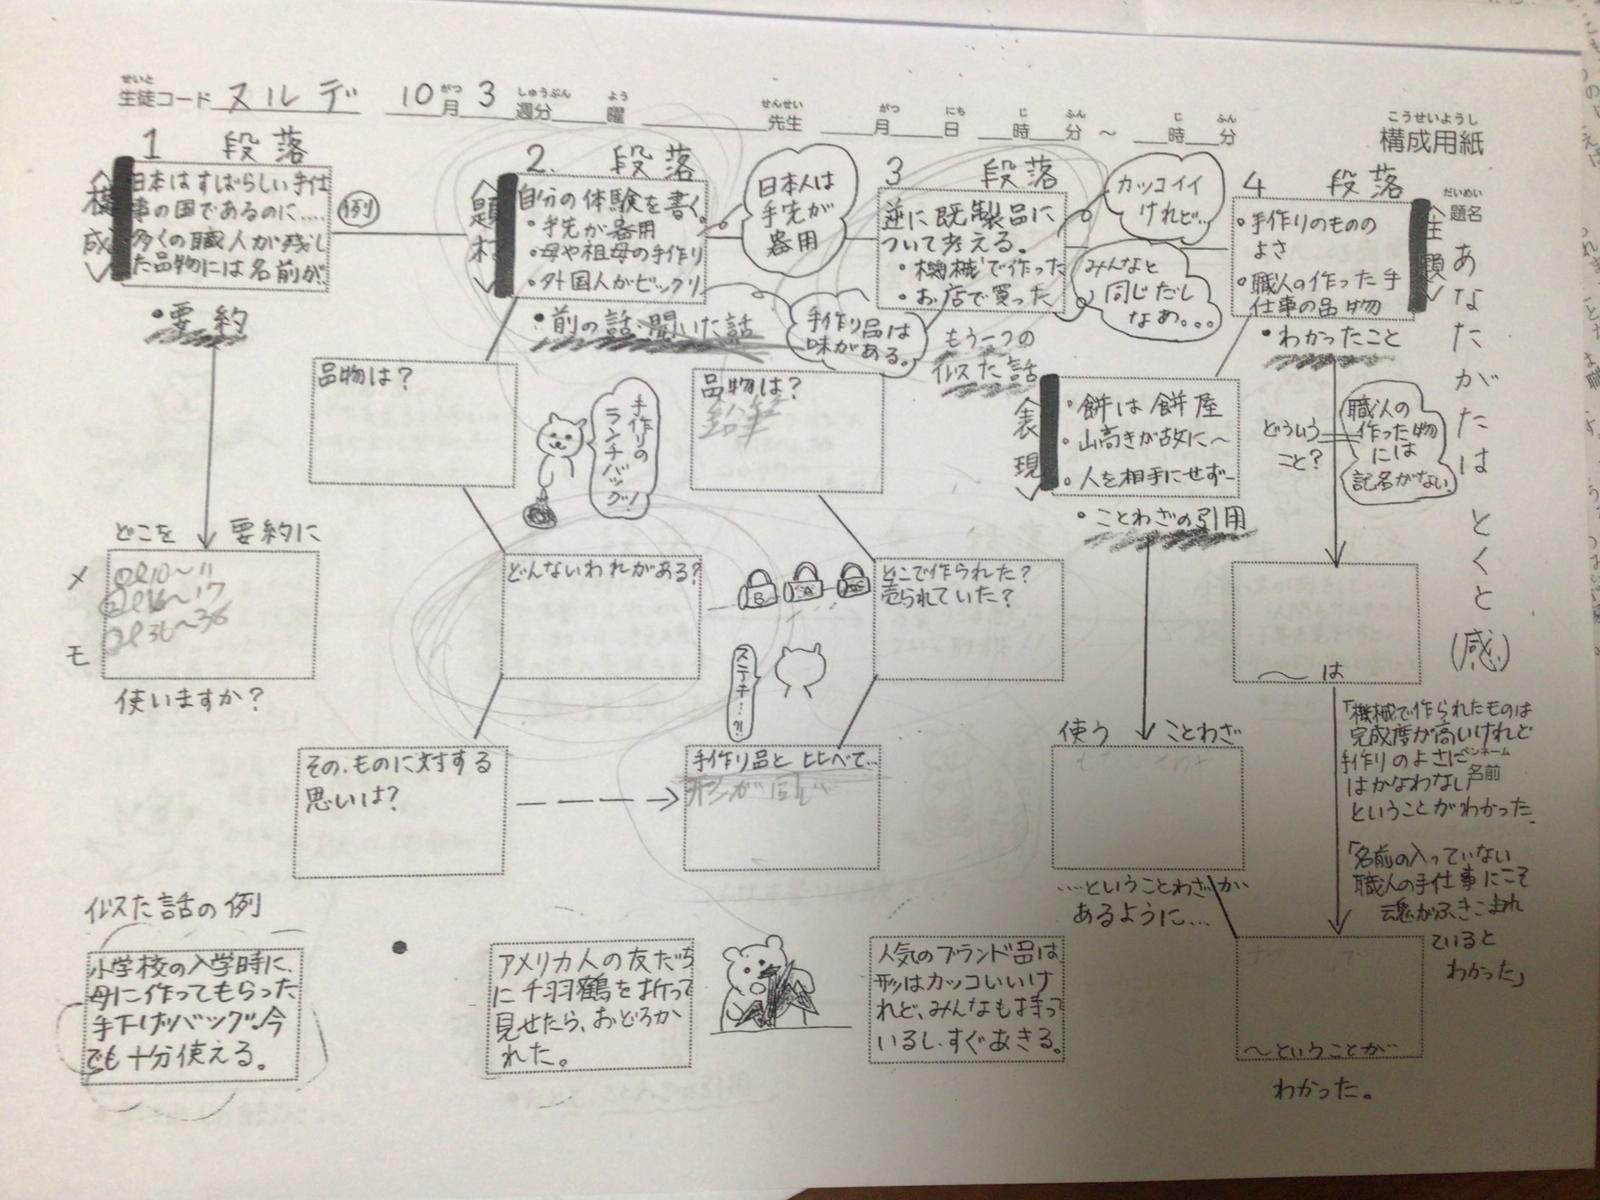 せいと
生徒コード ヌルデ 10月 3週分 曜 先生 月 日 時 分 ～ 時 分
がつ しゅうぶん よう せんせい がつ にち じ ふん じ ふん
こうせいようし
構成用紙
だいめい
題名
あなたがたは とくと (感)
1 段落
構成
日本はすばらしい手仕
事の国であるのに....
多くの職人が残し
た品物には名前が
・要約
例
どこを 要約に
メモ
使いますか?
2. 段落
題材
自分の体験を書く。
・手先が器用
・母や祖母の手作り
・外国人がビックリ
・前の話・聞いた話
日本人は
手先が
器用
手作り品は
味がある。
品物は?
手作りの
ランチバック!
どんないわれがある?
B
A
そのものに対する
思いは?
3 段落
逆に既製品に
ついて考える。
・機械で作った
・お店で買った
もう一つの
似た話
カッコイイ
けれど…
みんなと
同じだし
なぁ。。。
品物は?
鉛筆
どこで作られた?
売られていた?
ステキ…?!
手作り品と比べて…
形が同じ
4 段落
主題
・手作りのものの
よさ
・職人の作った手
仕事の品物
・わかったこと
表現
・餅は餅屋
・山高きが故に～
・人を相手にせず―
・ことわざの引用
どういう
こと?
職人の
作った物
には
記名がない
使う ことわざ
....ということわざが
あるように...
～は
「機械で作られたものは
完成度が高いけれど
手作りのよさに
はかなわない
ペンネーム
名前
ということがわかった.
「名前の入っていない
職人の手仕事にこそ
魂がふきこまれ
ていると
わかった」
～ということが
わかった。
似た話の例
小学校の入学時に、
母に作ってもらった
手下げバッグ.今
でも十分使える。
アメリカ人の友だち
に千羽鶴を折って
見せたら、おどろか
れた。
人気のブランド品は
形はカッコいいけ
れど、みんなも持って
いるし、すぐあきる。